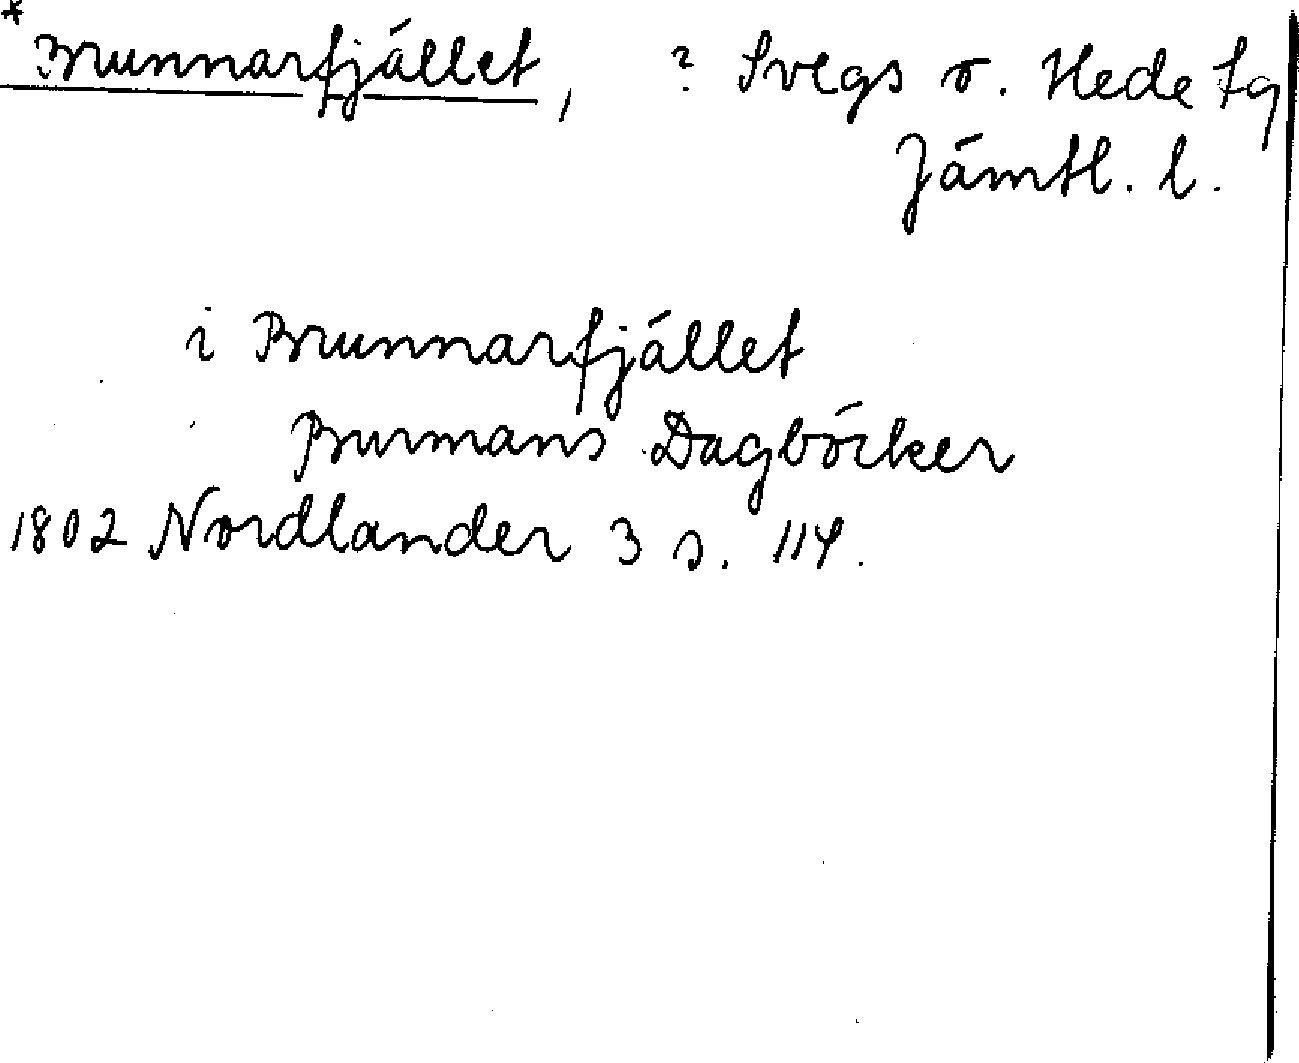 *Brunnarfjället, ? Svegs o. Hede tg
Jämtl. l.
i Brunnarfjället
Burmans Dagböcker
1802 Nordlander 3 s. 114.